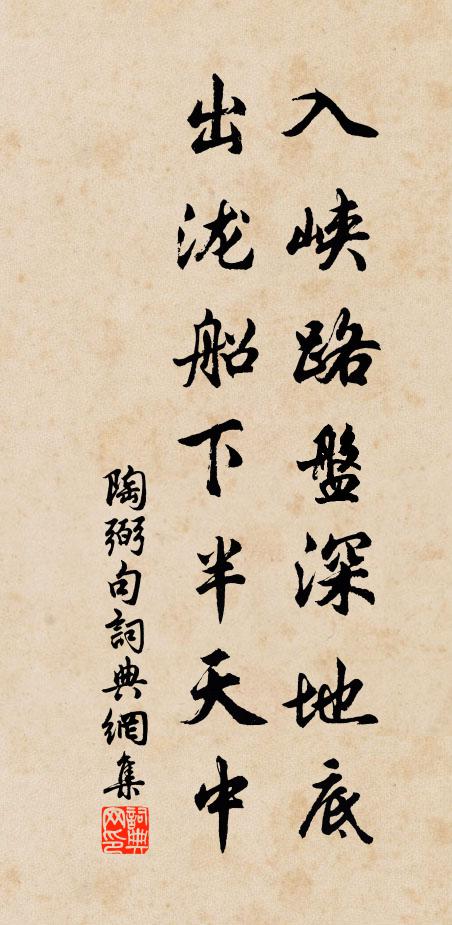 入峽路盤深地底
出泷船下半天中
陶弼句詞典網集
詞典
网印